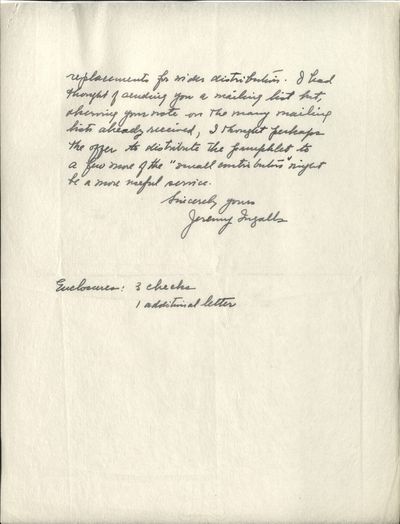 replacements for wider distribution. I had
thought of sending you a mailing list but,
observing your note on the many mailing
lists already received, I thought perhaps
the offer to distribute the pamphlet to
a few more of the "small contributors" might
be a more useful service.
Sincerely yours
Jeremy Ingalls
Enclosures: 3 checks
1 additional letter